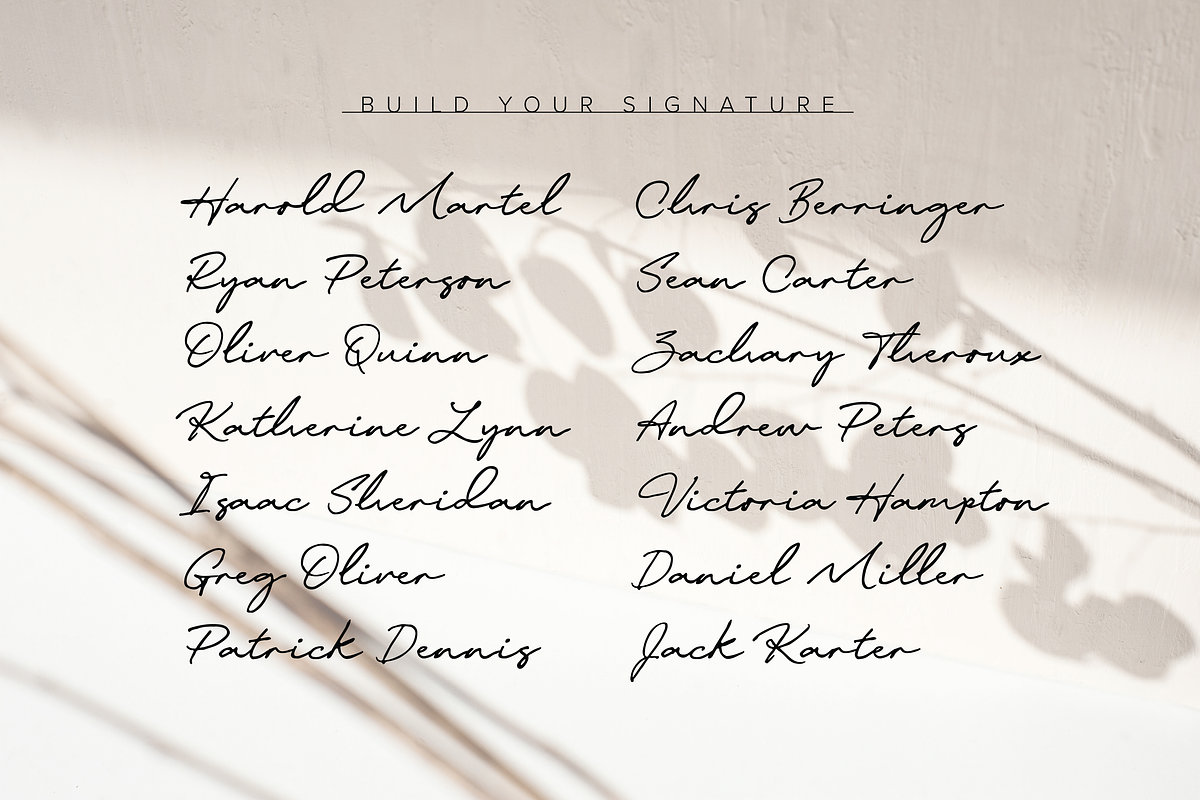 BUILD YOUR SIGNATURE
Harold Martel
Ryan Peterson
Oliver Quinn
Katherine Lynn
Isaac Sheridan
Greg Oliver
Patrick Dennis
Chris Berringer
Sean Carter
Zachary Theroux
Andrew Peters
Victoria Hampton
Daniel Miller
Jack Karter